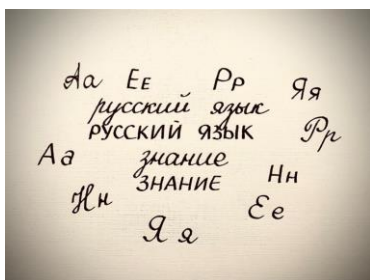 Аа Ее Рр Яя
русский язык
РУССКИЙ ЯЗЫК Рр
Аа знание
ЗНАНИЕ Нн
Нн Ее
Яя